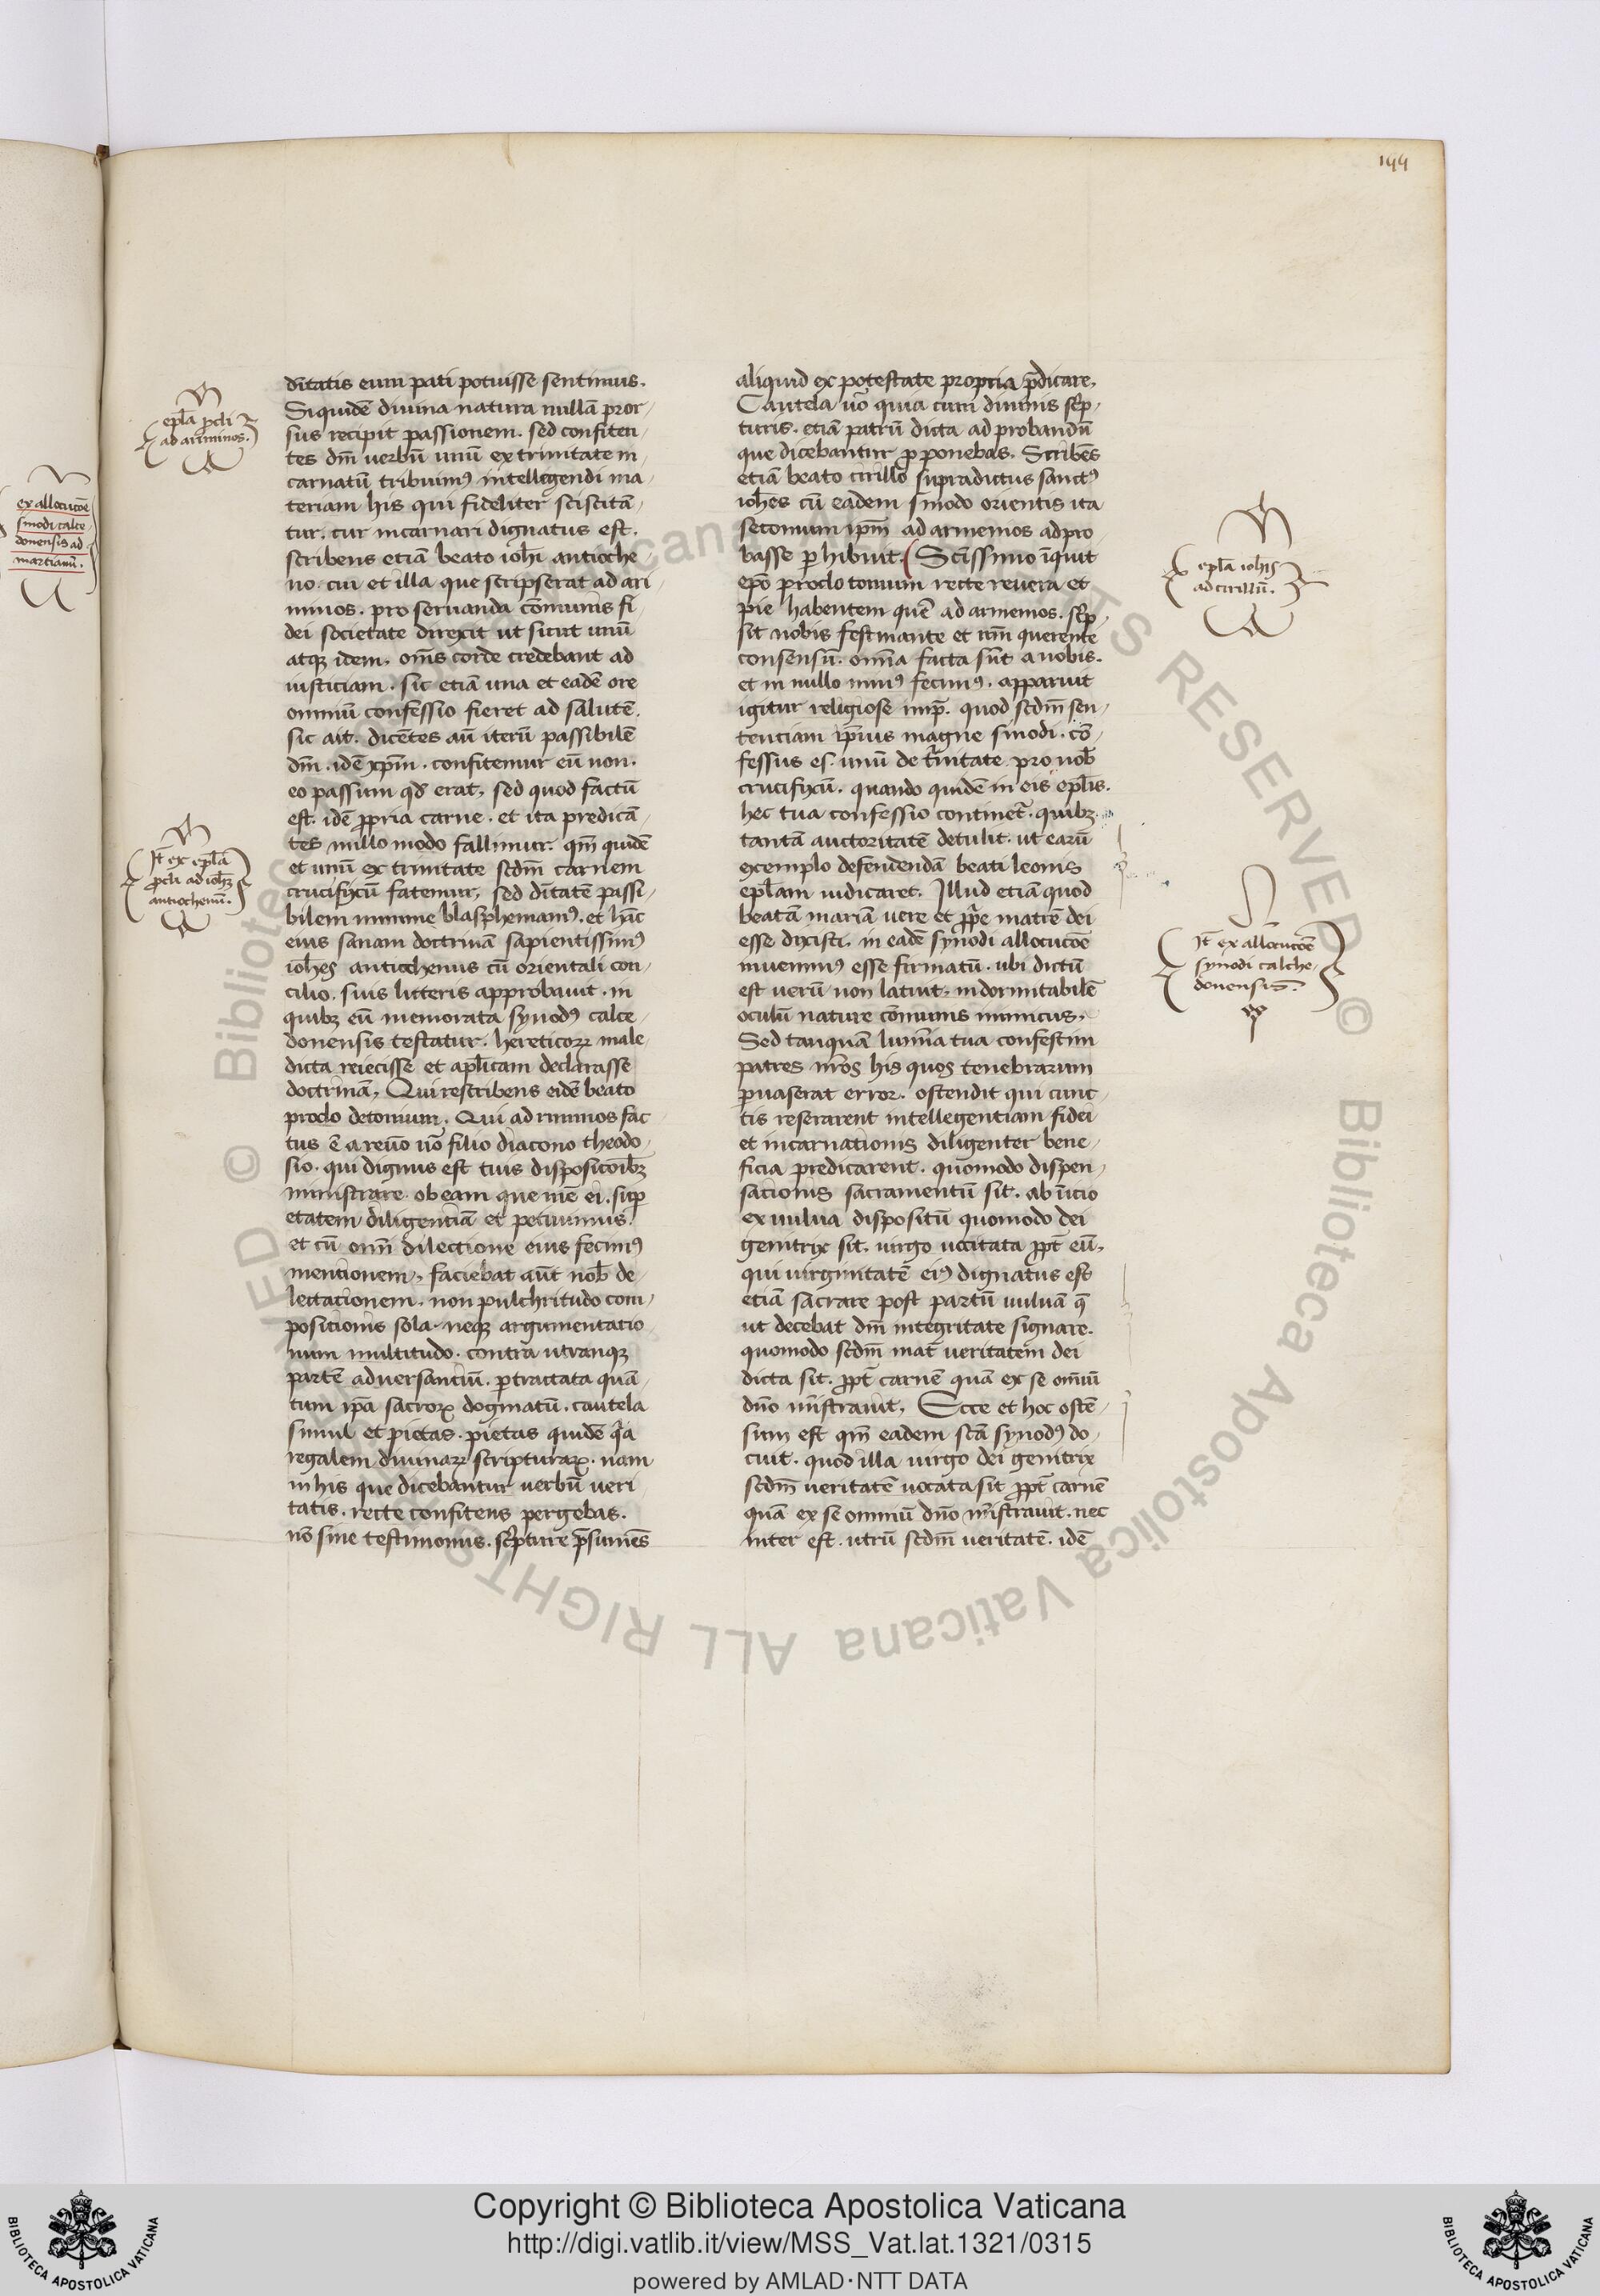 199
epl̄a ꝓcli
ad arminos.
ex allocucōe
sinodi calce
donensis ad
martianū.
dītatis eum pati potuisse sentimus.
Siquidē diuina natura nullā pror
sus recipit passionem. sed confiten
tes dm̄ uerbū unū ex trinitate in
carnatū tribuimꝰ intellegendi ma
teriam his qui fideliter sciscitā
tur. cur incarnari dignatus est.
scribens etiā beato ioh̄i antioche
no. cui et illa que scripserat ad ari
minos. pro seruanda cōmunis fi
dei societate direxit ut sicut unū
atqꝫ idem. om̄s corde credebant ad
iusticiam. sic etiā una et eadē ore
omniū confessio fieret ad salutē.
sic ait. dicētes aū iterū passibilē
dm̄. idē xp̄m. confitemur eū non.
eo passum qd̄ erat, sed quod factū
est. idē ꝓpria carne. et ita predicā
tes nullo modo fallimur. qm̄ quidē
et unū ex trinitate scdm̄ carnem
crucifixū fatemur, sed dītatē passi
bilem minime blasphemamꝰ. et hāc
eius sanam doctrinā sapientissimꝰ
ioh̄es antiochenus cū orientali con
cilio. suis litteris approbauit. in
quibꝫ eū memorata synodꝰ calce
donensis testatur. hereticoꝝ male
dicta reiecisse et apl̄icam declarasse
doctrinā, Qui rescribens eidē beato
proclo de tomum. Qui ad rminos fac
tus ē a reūo uō filio diacono theodo
sio. qui dignus est tuis disposicoībꝫ
ministrare. ob eam que inē ei. suꝑ
etatem diligentiā et petiuimus.
et cū om̄i dilectione eius fecimꝰ
mentionem, faciebat aūt nob̄ de
lectationem. non pulchritudo com
positionis sola. neqꝫ argumentatio
num multitudo. contra utranqꝫ
partē aduersantiū. ꝑtractata quā
tum ip̄a sacroꝝ dogmatū. cautela
simul et pietas. pietas quidē qa
regalem diuinaꝝ scripturaꝝ. nam
in his que dicebantur uerbū ueri
tatis. recte confitens pergebas.
nō sine testimoniis. scripture p̄sumēs
It̄ ex epl̄a
ꝓcli ad ioh̄ꝫ
antiochenū.
aliquid ex potestate propria p̄dicare.
Cautela uō quia cum diuinis scrip
turis. etiā patrū dicta ad probandū
que dicebantur ꝓponebas. Scribēs
etiā beato cirillo supradictus sanctꝰ
ioh̄es cū eadem sinodo orientis ita
se tomum ip̄m ad armenios adpro
basse ꝑhibuit. Scīssimo īquit
epō proclo tomum recte reuera et
pie habentem quē ad armenios. scrip
sit nobis festinante et nr̄m querente
consensū. omīa facta sūt a nobis.
et in nullo minꝰ fecimꝰ. apparuit
igitur religiose imp̄. quod scdm̄ sen
tenciam ip̄ius magne sinodi. cō
fessus es. unū de tinitate pro nob̄
crucifixū. quando quidē in eis epl̄is.
hec tua confessio continet. quibꝫ
tantā auctoritatē detulit. ut earū
exemplo defendendā beati leonis
epl̄am iudicaret. Illud etiā quod
beatā mariā uere et ꝓp̄e matrē dei
esse dixisti. in eadē synodi allocucōe
inuenimꝰ esse firmatū. ubi dictū
est uerū non latuit. indormitabilē
oculū nature cōmunis inimicus.
Sed tanquā lumīa tua confestim
patres nr̄os his quos tenebrarum
ꝑuaserat error. ostendit qui cunc
tis reserarent intellegentiam fidei
et incarnationis diligenter bene
ficia predicarent. quomodo dispen
sacionis sacramentū sit. ab īicio
ex uulua dispositū quomodo dei
genitrix sit. uirgo uocitata ꝓpt̄ eū.
qui uirginitatē eiꝰ dignatus est
etiā sacrare post partū uuluā qꝫ
ut decebat dm̄ integritate signare.
quomodo scdm̄ mat̄ ueritatem dei
dicta sit. ꝓpt̄ carnē quā ex se om̄iū
dn̄o mīstrauit, Ecce et hoc ostē
sum est qm̄ eadem scā synodꝰ do
cuit. quod illa uirgo dei genitrix
scdm̄ ueritatē uocata sit ꝓpt̄ carnē
quā ex se omniū dn̄o mīstrauit. nec
inter est. utrū scdm̄ ueritatē. idē
epl̄a ioh̄is
ad cirillū.
It̄ ex allocucōe
synodi calche
donensis.
Copyright © Biblioteca Apostolica Vaticana
http://digi.vatlib.it/view/MSS_Vat.lat.1321/0315
powered by AMLAD·NTT DATA
BIBLIOTECA APOSTOLICA VATICANA
BIBLIOTECA APOSTOLICA VATICANA
© Biblioteca Apostolica Vaticana ALL RIGHTS RESERVED